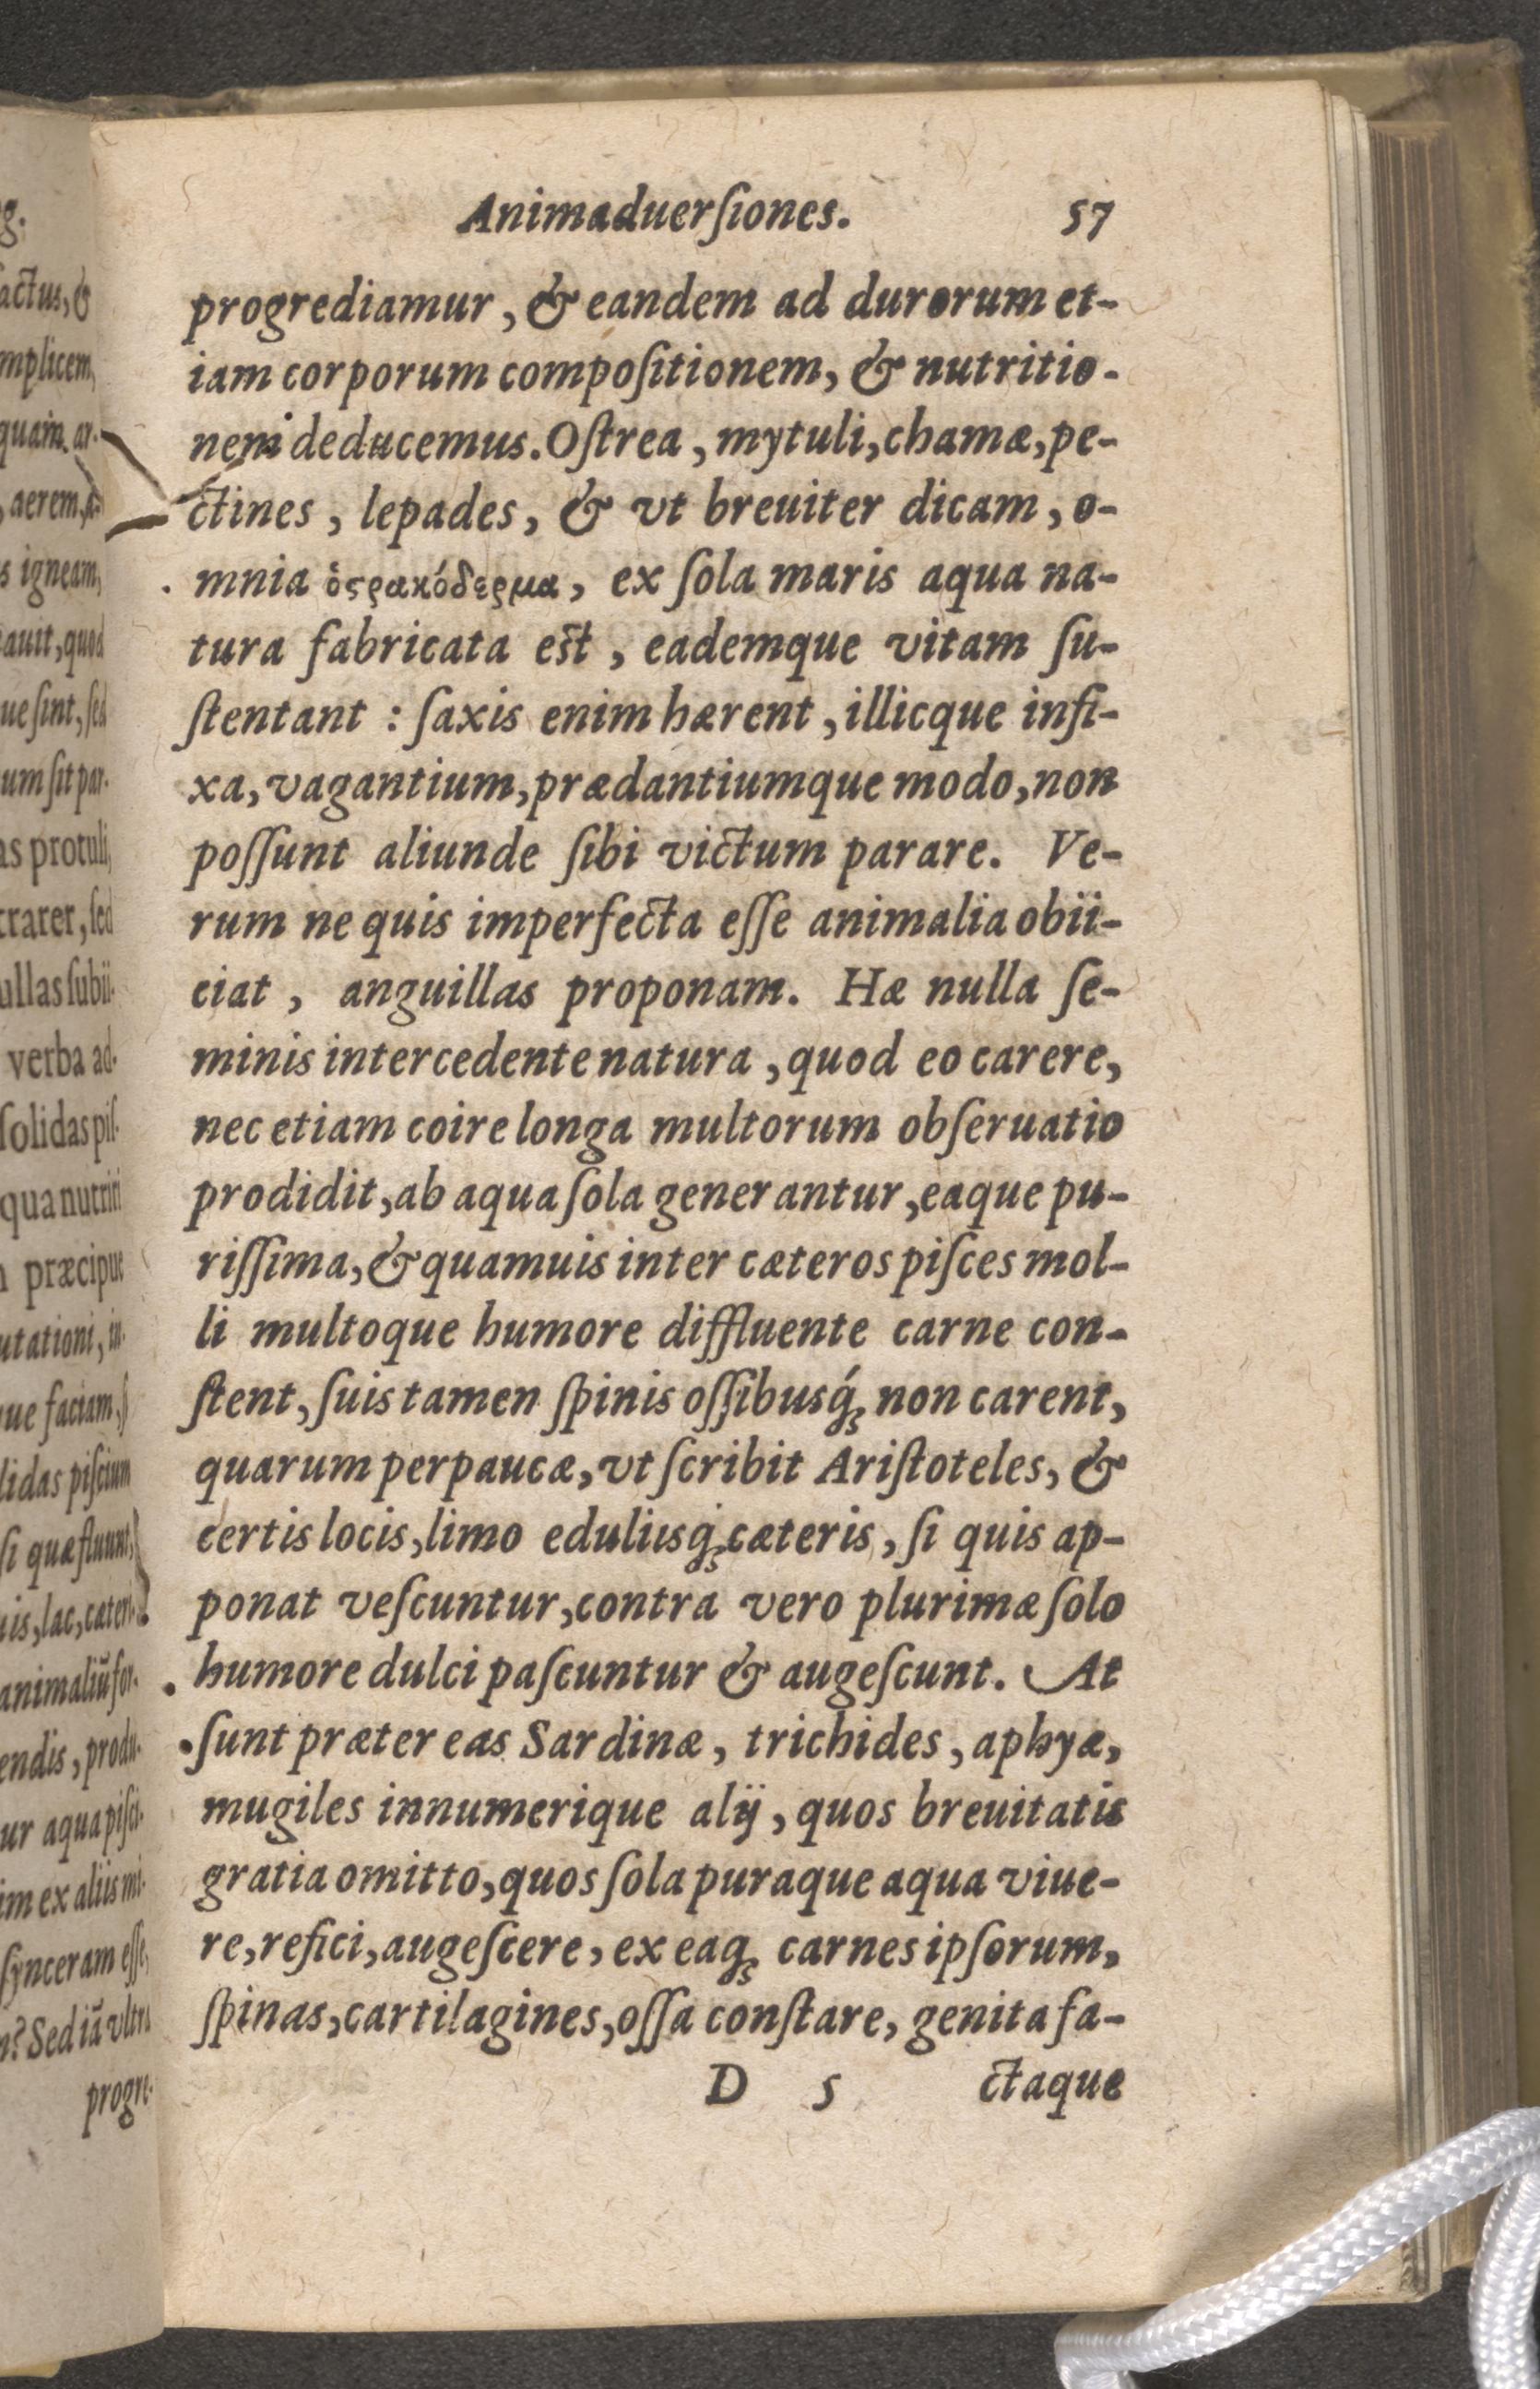 Animaduerſiones. 57
progrediamur, & eandem ad durorum et-
iam corporum compoſitionem, & nutritio-
nem deducemus. Oſtrea, mytuli, chamæ, pe-
ctines, lepades, & vt breuiter dicam, o-
mnia ὀςρακόδερμα, ex ſola maris aqua na-
tura fabricata eſt, eademque vitam ſu-
ſtentant : ſaxis enim hærent, illicque infi-
xa, vagantium, prædantiumque modo, non
poſſunt aliunde ſibi victum parare. Ve-
rum ne quis imperfecta eſſe animalia obii-
ciat, anguillas proponam. Hæ nulla ſe-
minis intercedente natura, quod eo carere,
nec etiam coire longa multorum obſeruatio
prodidit, ab aqua ſola generantur, eaque pu-
riſſima, & quamuis inter cæteros piſces mol-
li multoque humore diffluente carne con-
ſtent, ſuis tamen ſpinis oſſibusq́; non carent,
quarum perpaucæ, vt ſcribit Ariſtoteles, &
certis locis, limo eduliisq́; cæteris, ſi quis ap-
ponat veſcuntur, contra vero plurimæ ſolo
humore dulci paſcuntur & augeſcunt. At
ſunt præter eas Sardinæ, trichides, aphyæ,
mugiles innumerique alij, quos breuitatis
gratia omitto, quos ſola puraque aqua viue-
re, refici, augeſcere, ex eaq; carnes ipſorum,
ſpinas, cartilagines, oſſa conſtare, genita fa-
D 5 ctaque
g.
actus, &
mplicem,
quam ar-
aerem,
s igneam,
auit, quod
ue ſint, ſed
um ſit par-
as protuli,
trarer, ſed
ullas ſubii-
verba ad-
ſolidas piſ-
qua nutriri
præcipue
utationi, in-
ue faciam, ſi
lidas piſcium
ſi quæ fluunt,
uis, lac, cæteri-
animaliū for-
endis, produ-
ur aqua piſci-
im ex aliis mi-
ſynceram eſſe,
n? Sed iā vltra
progre-